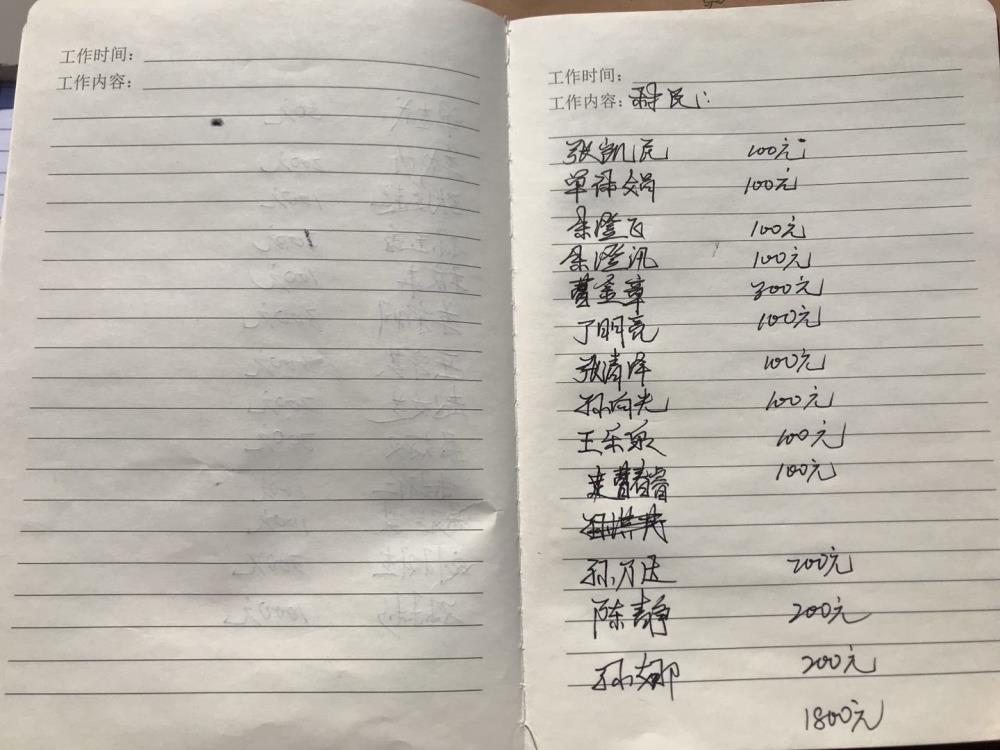 工作时间:
工作内容:
工作时间:
工作内容: 民:
张凯 100元
单译娟 100元
桑澄飞 100元
桑澄汛 100元
曹圣章 300元
丁明亮 100元
张涛泽 100元
孙向光 100元
王乐泉 100元
曹春睿 100元
孙乃 200元
陈静 200元
孙娜 200元
1800元